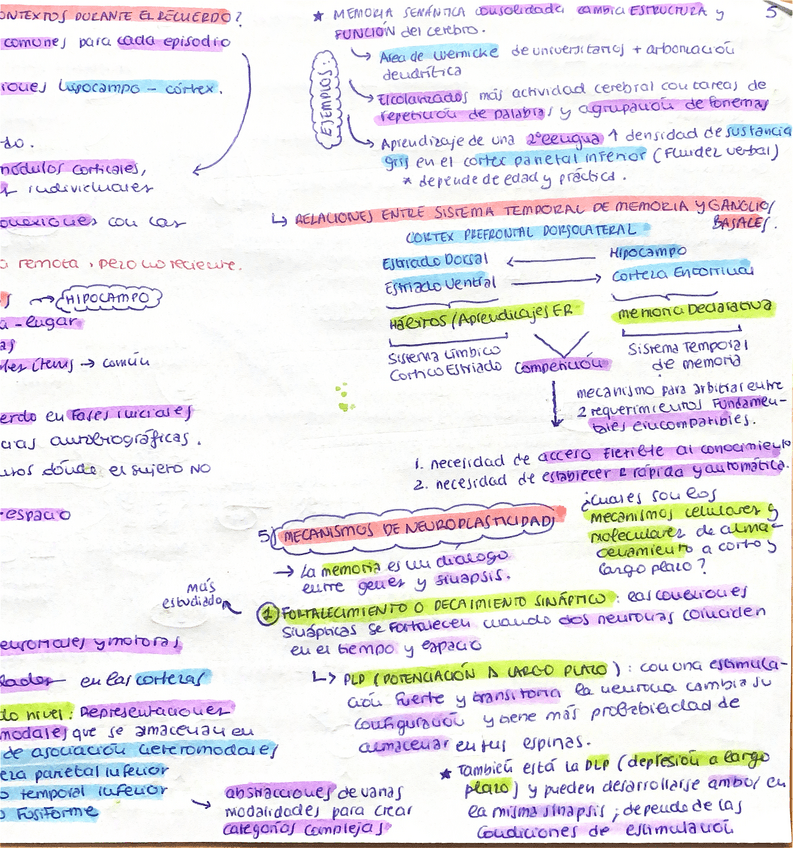 ONTEXTOS DURANTE EL RECUERDO?
comunes para cada episodio
iones hipocampo - córtex.
do.
módulos corticales,
r individuales
onexiones con las
a remota, pero no reciente.
→ HIPOCAMPO
a - lugar
as
ítems → común
erdo en fases iniciales
cias autobiográficas.
uros dónde el sujeto NO
espacio
más
estudiado
sensoriales y motoras
lados en las cortezas
do nivel: Representaciones
modales que se almacenan en
de asociación heteromodales
eza parietal inferior
o temporal inferior
o Fusiforme
→ abstracciones de varias
modalidades para crear
categorías complejas
5
★ MEMORIA SEMÁNTICA consolidada cambia ESTRUCTURA y
FUNCIÓN del cerebro.
EJEMPLOS:
→ Área de Wernicke de universitarios + arborización
dendrítica
→ Escolarizados más actividad cerebral con tareas de
repetición de palabras y agrupación de fonemas
→ Aprendizaje de una 2ª lengua ↑ densidad de sustancia
gris en el cortex parietal inferior (Fluidez verbal)
* depende de edad y práctica.
↳ RELACIONES ENTRE SISTEMA TEMPORAL DE MEMORIA Y GANGLIOS
BASALES.
CORTEX PREFRONTAL DORSOLATERAL
Estriado Dorsal ← Hipocampo
Estriado Ventral → Corteza Entorrinal
Hábitos / Aprendizajes ER
memoria Declarativa
Sistema Límbico
Cortico Estriado
Competición
Sistema Temporal
de memoria
mecanismo para arbitrar entre
2 requerimientos Fundamen-
tales e incompatibles.
1. necesidad de acceso flexible al conocimiento
2. necesidad de establecer R rápida y automática.
5) MECANISMOS DE NEUROPLASTICIDAD
¿Cuáles son los
mecanismos celulares y
moleculares de alma-
cenamiento a corto y
largo plazo?
→ La memoria es un diálogo
entre genes y sinapsis.
1 FORTALECIMIENTO O DECAIMIENTO SINÁPTICO: las conexiones
sinápticas se fortalecen cuando dos neuronas coinciden
en el tiempo y espacio
↳ PLP (POTENCIACIÓN A LARGO PLAZO): con una estimula-
ción fuerte y transitoria la neurona cambia su
configuración y tiene más probabilidad de
almacenar en sus espinas.
★ También está la DLP (depresión a largo
plazo) y pueden desarrollarse ambos en
la misma sinapsis; depende de las
condiciones de estimulación